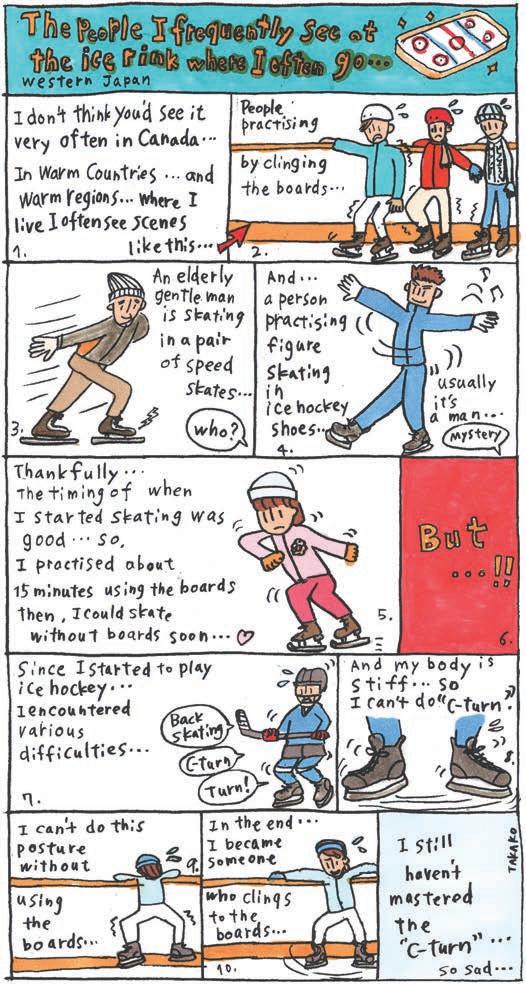 The People I frequently see at
the ice rink where I often go...
western Japan
I don't think you'd see it
very often in Canada...
In Warm Countries ... and
Warm regions... where I
live I often see scenes
like this...
1.
People
practising
by clinging
the boards...
2.
An elderly
gentle man
is skating
in a pair
of speed
skates...
3.
who?
And...
a person
practising
figure
skating
in
ice hockey
shoes...
4.
usually
it's
a man...
mystery
Thankfully...
The timing of when
I started skating was
good... so,
I practised about
15 minutes using the boards
then, I could skate
without boards soon...
5.
But
...!!
6.
Since I started to play
ice hockey...
I encountered
various
difficulties...
7.
Back
skating
C-turn
Turn!
And my body is
stiff... so
I can't do "C-turn".
8.
I can't do this
posture
without
9.
using
the
boards...
In the end...
I became
someone
who clings
to the
boards...
10.
I still
haven't
mastered
the
"C-turn"...
so sad...
TAKAKO